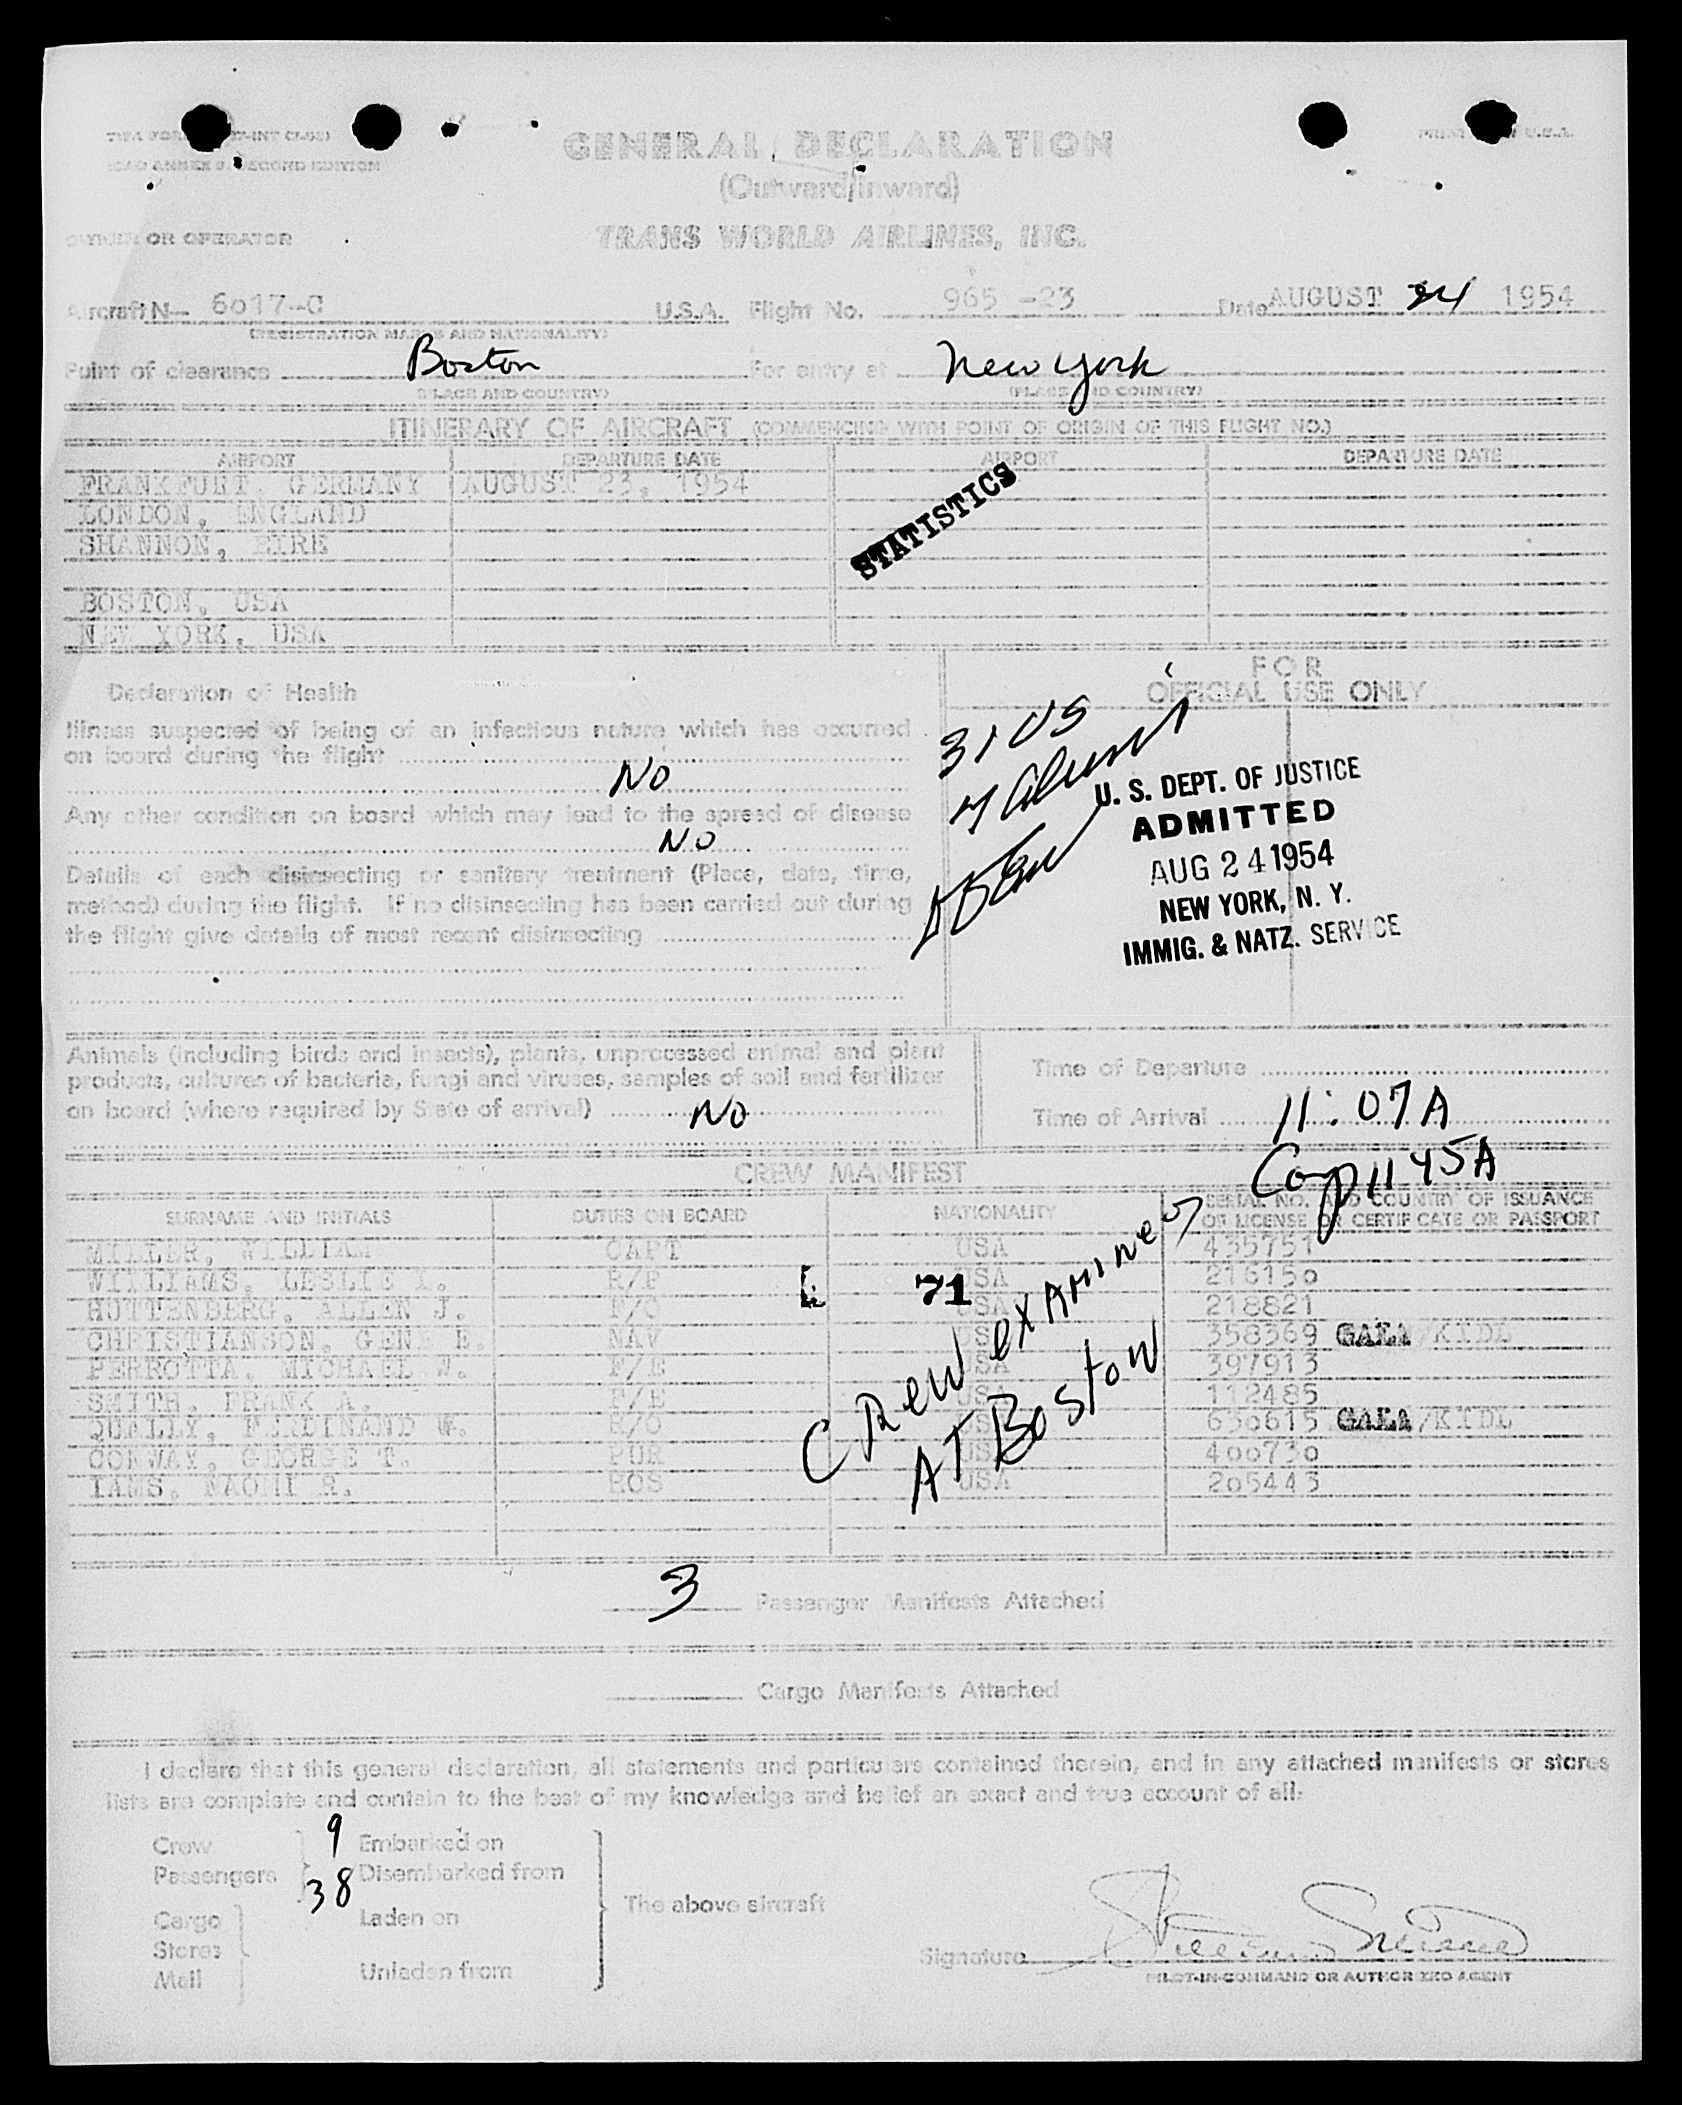 GENERAL DECLARATION
(Outward/Inward)
OWNER OR OPERATOR TRANS WORLD AIRLINES, INC.
Aircraft N— 6017-C U.S.A. Flight No. 965-23 Date AUGUST 24 1954
(REGISTRATION MARKS AND NATIONALITY)
Point of clearance Boston For entry at New York
(PLACE AND COUNTRY) (PLACE AND COUNTRY)
ITINERARY OF AIRCRAFT (COMMENCING WITH POINT OF ORIGIN OF THIS FLIGHT NO.)
AIRPORT DEPARTURE DATE AIRPORT DEPARTURE DATE
FRANKFURT, GERMANY AUGUST 23, 1954
LONDON, ENGLAND
SHANNON, EIRE
BOSTON, USA
NEW YORK, USA
STATISTICS
Declaration of Health
Illness suspected of being of an infectious nature which has occurred
on board during the flight
No
Any other condition on board which may lead to the spread of disease
NO
Details of each disinsecting or sanitary treatment (Place, date, time,
method) during the flight. If no disinsecting has been carried out during
the flight give details of most recent disinsecting
FOR
OFFICIAL USE ONLY
31 US
U. S. DEPT. OF JUSTICE
ADMITTED
AUG 24 1954
NEW YORK, N. Y.
IMMIG. & NATZ. SERVICE
Animals (including birds and insects), plants, unprocessed animal and plant
products, cultures of bacteria, fungi and viruses, samples of soil and fertilizer
on board (where required by State of arrival) No
Time of Departure
Time of Arrival 11:07A
Comp 1145A
CREW MANIFEST
SURNAME AND INITIALS DUTIES ON BOARD NATIONALITY SERIAL NO. AND COUNTRY OF ISSUANCE
OF LICENSE OR CERTIFICATE OR PASSPORT
MILLER, WILLIAM CAPT USA 435751
WILLIAMS, LESLIE USA 216150
HUTTENBERG, ALLEN J. F/O USA 218821
CHRISTIANSON, GENE E. NAV USA 358369 GAEA/KIDL
PERROTTA, MICHAEL W. F/E USA 397913
SMITH, FRANK A. F/E USA 112485
QUELLY, FERDINAND W. R/O USA 630615 GAEA/KIDL
CONWAY, GEORGE T. PUR USA 400730
IAMS, NAOMI R. HOS USA 205443
71
CREW examined
AT Boston
3 Passenger Manifests Attached
Cargo Manifests Attached
I declare that this general declaration, all statements and particulars contained therein, and in any attached manifests or stores
lists are complete and contain to the best of my knowledge and belief an exact and true account of all:
Crew 9 Embarked on
Passengers 38 Disembarked from
The above aircraft
Cargo Laden on
Stores
Mail Unladen from
Signature
PILOT-IN-COMMAND OR AUTHORIZED AGENT